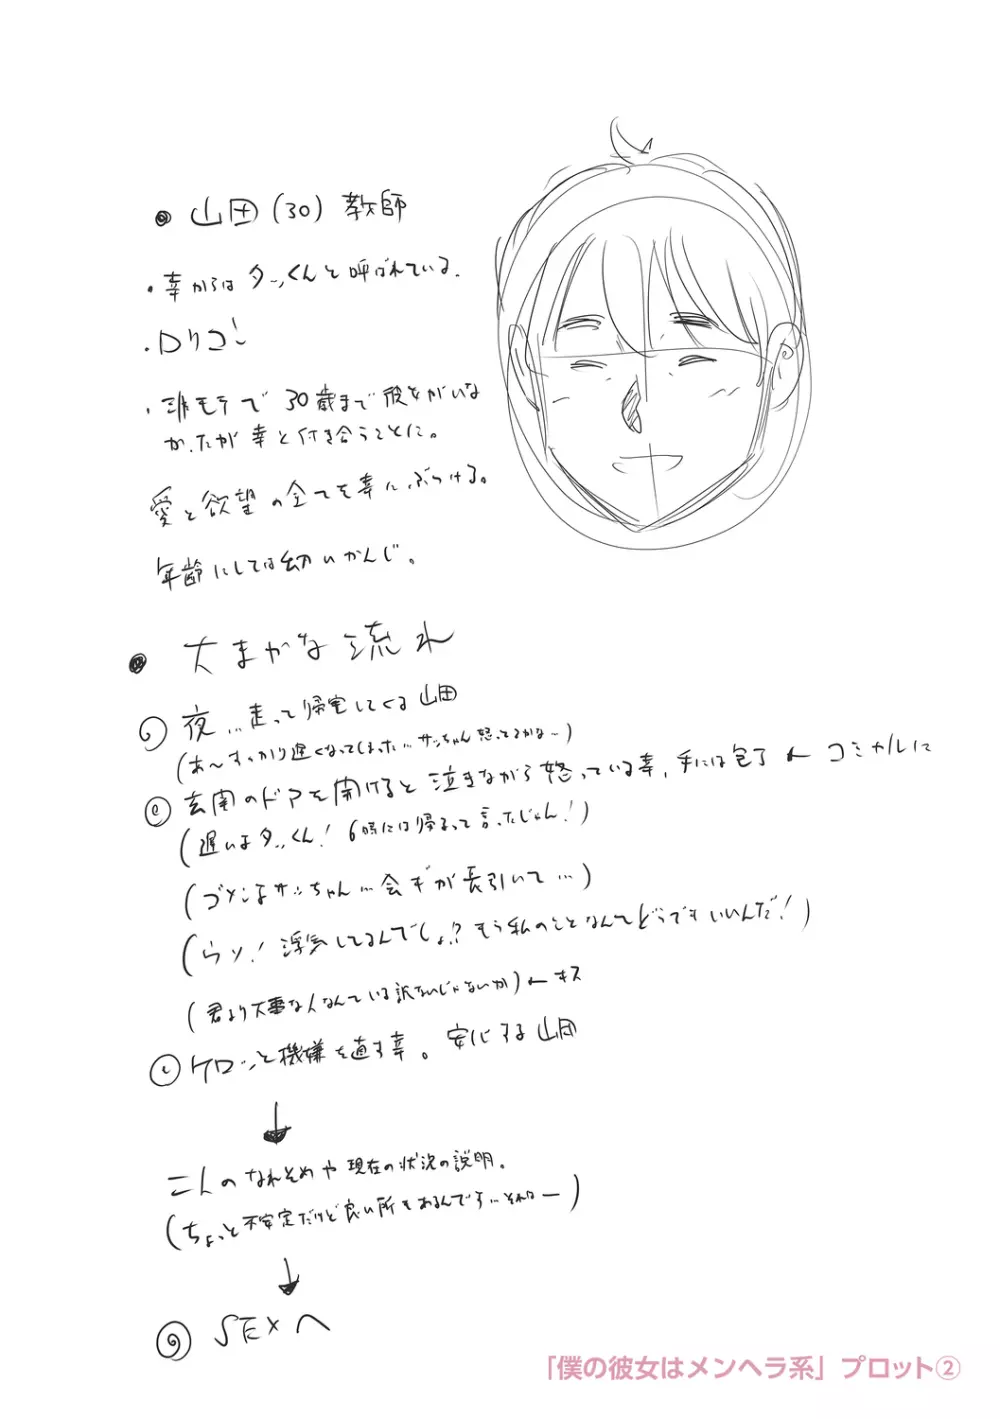 ●山田(30)教師
・幸からはタッくんと呼ばれている.
・ロリコン
・非モテで30歳まで彼女がいな
かったが幸と付き合うことに。
愛と欲望の全てを幸にぶつける。
年齢にしては幼いかんじ。
●大まかな流れ
夜…走って帰宅してくる山田
(あ〜すっかり遅くなってしまった…サッちゃん怒ってるかな〜)
玄関のドアを開けると泣きながら怒っている幸,手には包丁←コミカルに
(遅いよタッくん!6時には帰るって言ったじゃん!)
(ゴメンよサッちゃん…会ギが長引いて…)
(ウソ!浮気してるんでしょ?もう私のことなんてどうでもいいんだ!)
(君より大事な人なんている訳ないじゃないか)←キス
ケロッと機嫌を直す幸。安心する山田
↓
二人のなれそめや現在の状況の説明.
(ちょっと不安定だけど良い所もあるんです…それは―)
↓
SEXへ
「僕の彼女はメンヘラ系」プロット②